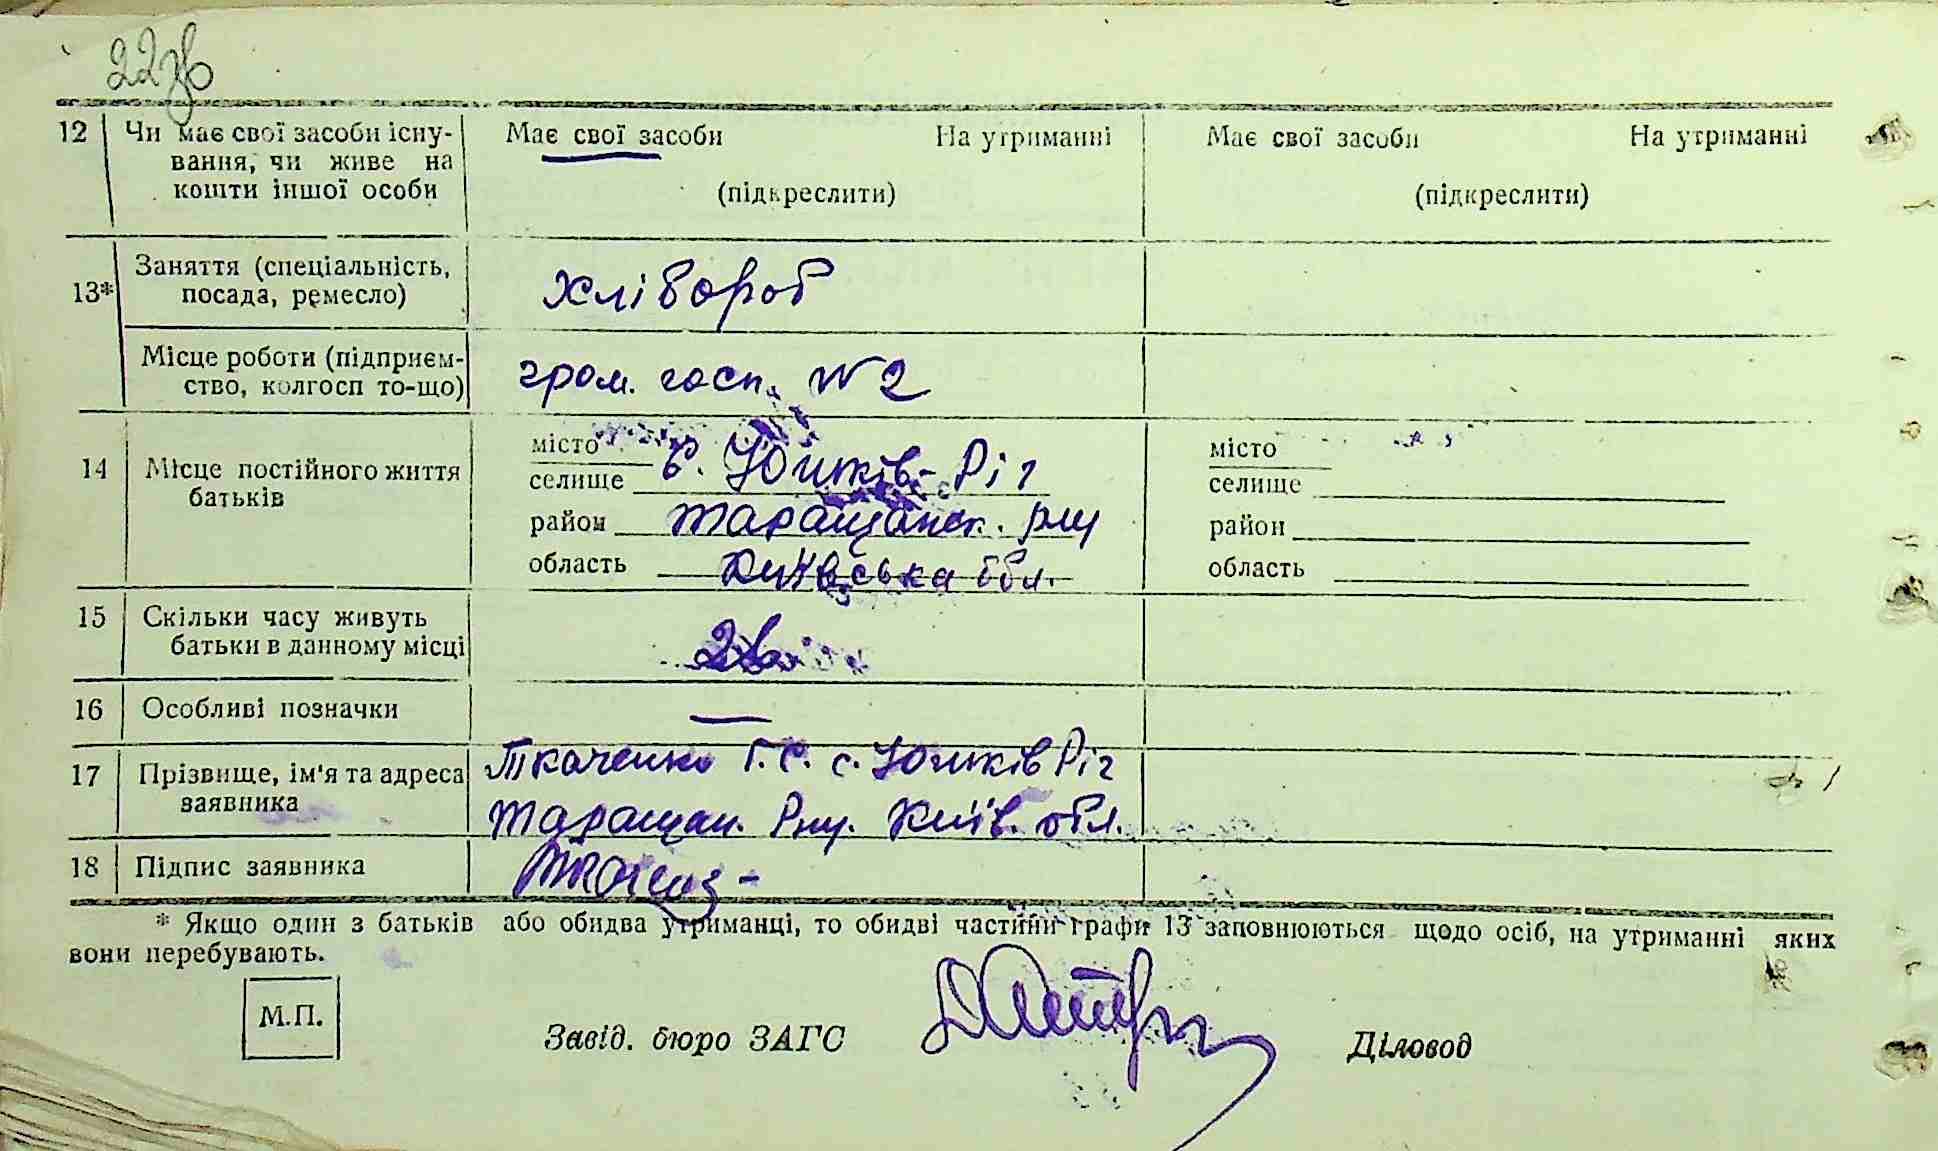 22зв
12 Чи має свої засоби існу- Має свої засоби На утриманні Має свої засоби На утриманні
вання, чи живе на
кошти іншої особи (підкреслити) (підкреслити)
13* Заняття (спеціальність,
посада, ремесло) хлібороб
Місце роботи (підприєм-
ство, колгосп то-що) гром. госп. №2
14 Місце постійного життя
батьків
місто місто
селище с. Юшків-Ріг селище
район Таращанск. район
область Київська обл. область
15 Скільки часу живуть
батьки в данному місці
16 Особливі позначки —
17 Прізвище, ім'я та адреса Ткаченко Г.С. с. Юшків Ріг
заявника Таращан. Київ. обл.
18 Підпис заявника
* Якщо один з батьків або обидва утриманці, то обидві частини графи 13 заповнюються щодо осіб, на утриманні яких
вони перебувають.
М.П.
Завід. бюро ЗАГС Діловод